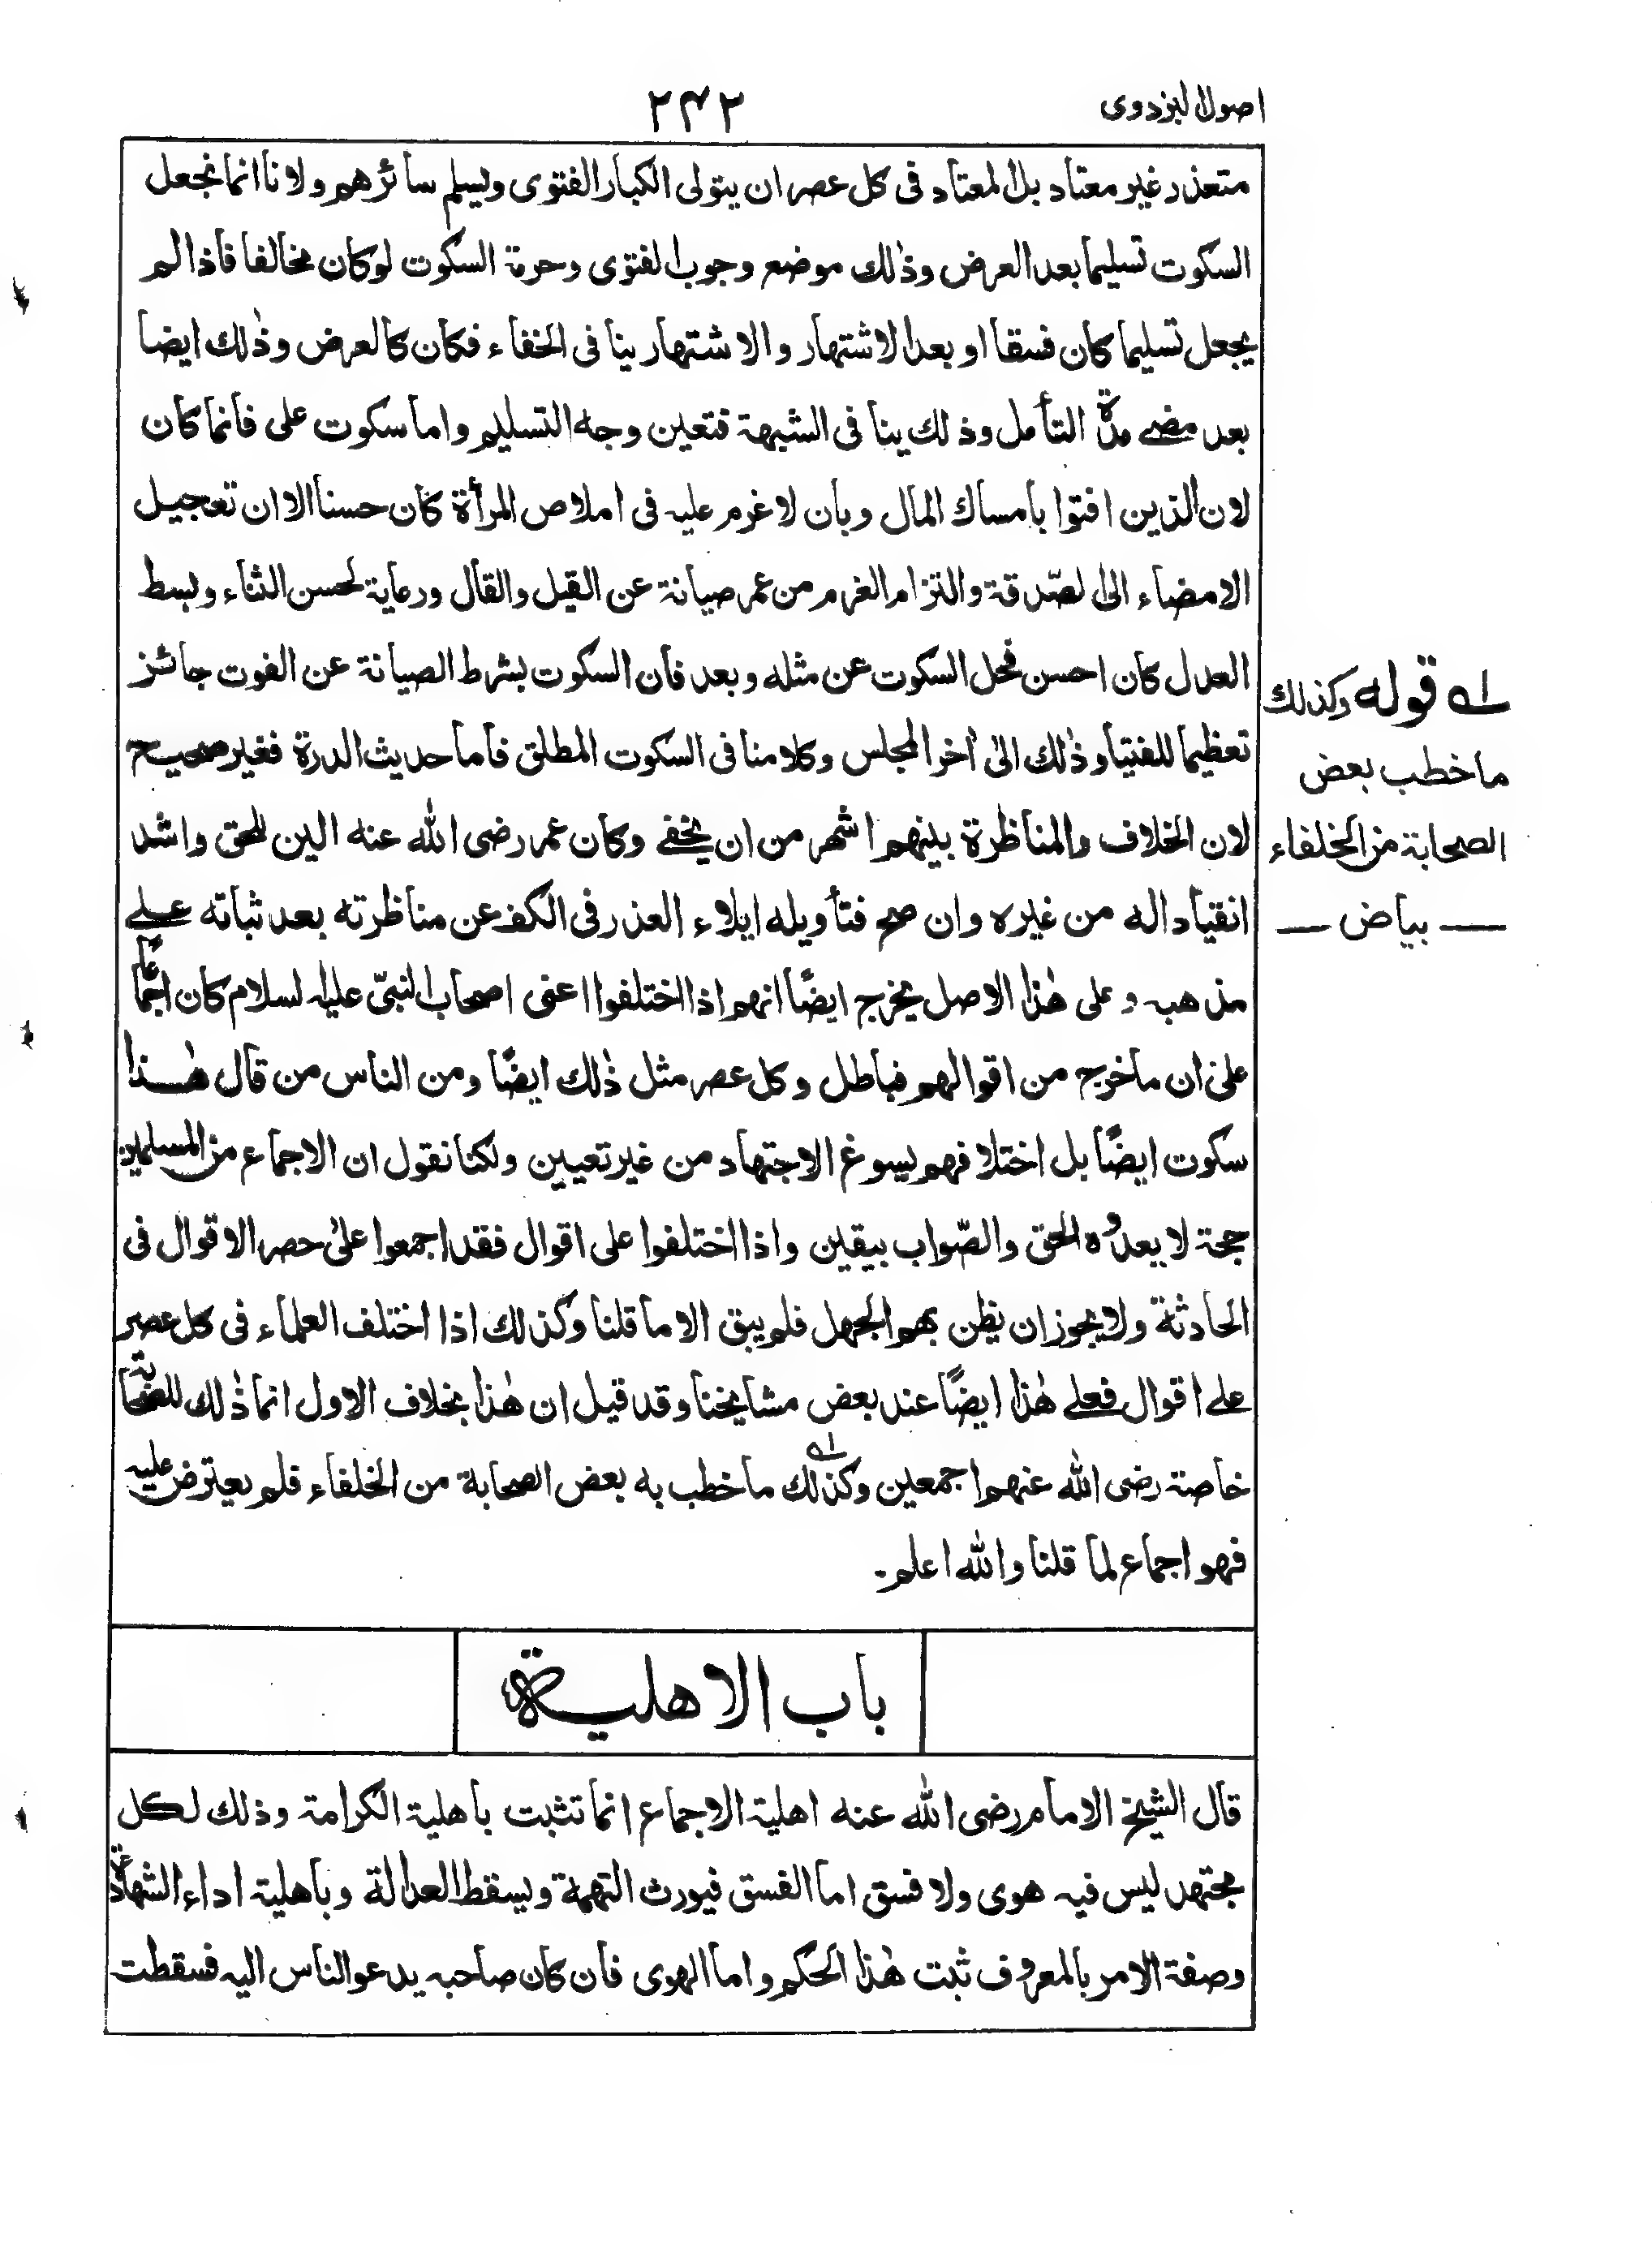 اصول البزدوی
۲۴۲
متعذر غير معتاد بل المعتاد فى كل عصر ان يتولى الكبار الفتوى ويسلم سائرهم ولانا انما نجعل
السكوت تسليما بعد العرض وذٰلك موضع وجوب الفتوى وحرمة السكوت لو كان مخالفا فاذا لم
يجعل تسليما كان فسقا او بعد الاشتهار والاشتهار ينا فى الخفاء فكان كالعرض وذٰلك ايضا
بعد مضے مدة التأمل وذلك ينا فى الشبهة فتعين وجه التسليم واما سكوت على فانما كان
لان الذين افتوا بامساك المال وبان لا غرم عليه فى املاص المرأة كان حسنا الا ان تعجيل
الامضاء الى الصّدقة والتزام الغرم من عمر صيانة عن القيل والقال ورعاية لحسن الثناء وبسط
العدل كان احسن فحل السكوت عن مثله وبعد فان السكوت بشرط الصيانة عن الفوت جائز
تعظيما للفتيا وذٰلك الىٰ اٰخر المجلس وكلامنا فى السكوت المطلق فاما حديث الدرة فغير صحيح
لان الخلاف والمناظرة بينهم اشهر من ان يخفے وكان عمر رضى الله عنه الين للحق واشد
انقيادا له من غيره وان صح فتأويله ابلاء العذر فى الكف عن مناظرته بعد ثباته علے
مذهبه وعلى هٰذا الاصل يخرج ايضًا انهم اذا اختلفوا اعنى اصحاب النبىّ عليه السلام كان اجماعًا
علىٰ ان ما خرج من اقوالهم فباطل وكل عصر مثل ذٰلك ايضًا ومن الناس من قال هٰذا
سكوت ايضًا بل اختلافهم يسوغ الاجتهاد من غير تعيين ولكنا نقول ان الاجماع من المسلمين
حجة لا يعدوه الحق والصّواب بيقين واذا اختلفوا على اقوال فقد اجمعوا علىٰ حصر الاقوال فى
الحادثة ولا يجوز ان يظن بهم الجهل فلم يبق الا ما قلنا وكذلك اذا اختلف العلماء فى كل عصر
علے اقوال فعلے هٰذا ايضًا عند بعض مشايخنا وقد قيل ان هٰذا بخلاف الاول انما ذٰلك للصحابة
خاصة رضى الله عنهم اجمعين وكذلك ؎۱ ما خطب به بعض الصحابة من الخلفاء فلم يعترض عليه
فهو اجماع لما قلنا والله اعلم۔
؎۱ قوله وكذلك
ما خطب بعض
الصحابة من الخلفاء
— بياض —
باب الاهلية
قال الشيخ الامام رضى الله عنه اهلية الاجماع انما تثبت باهلية الكرامة وذلك لكل
مجتهد ليس فيه هوى ولا فسق اما الفسق فيورث التهمة ويسقط العدالة وباهلية اداء الشهادة
وصفة الامر بالمعروف ثبت هٰذا الحكم واما الهوى فان كان صاحبه يدعو الناس اليه فسقطت